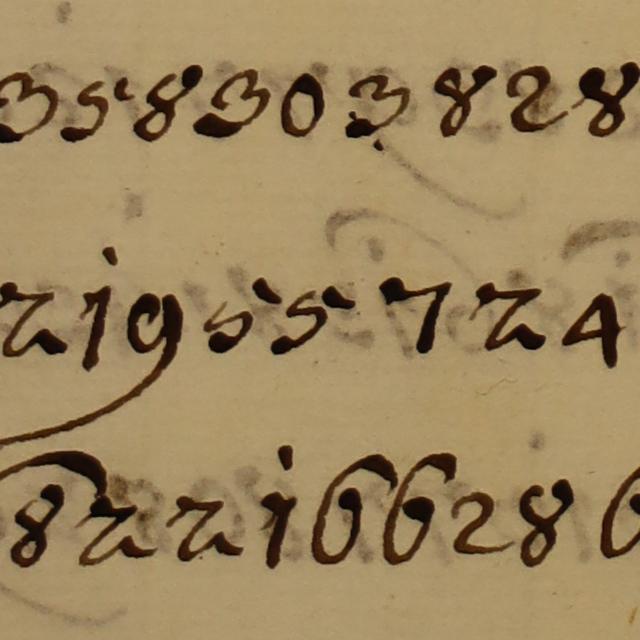 358303828
21955724
822166286